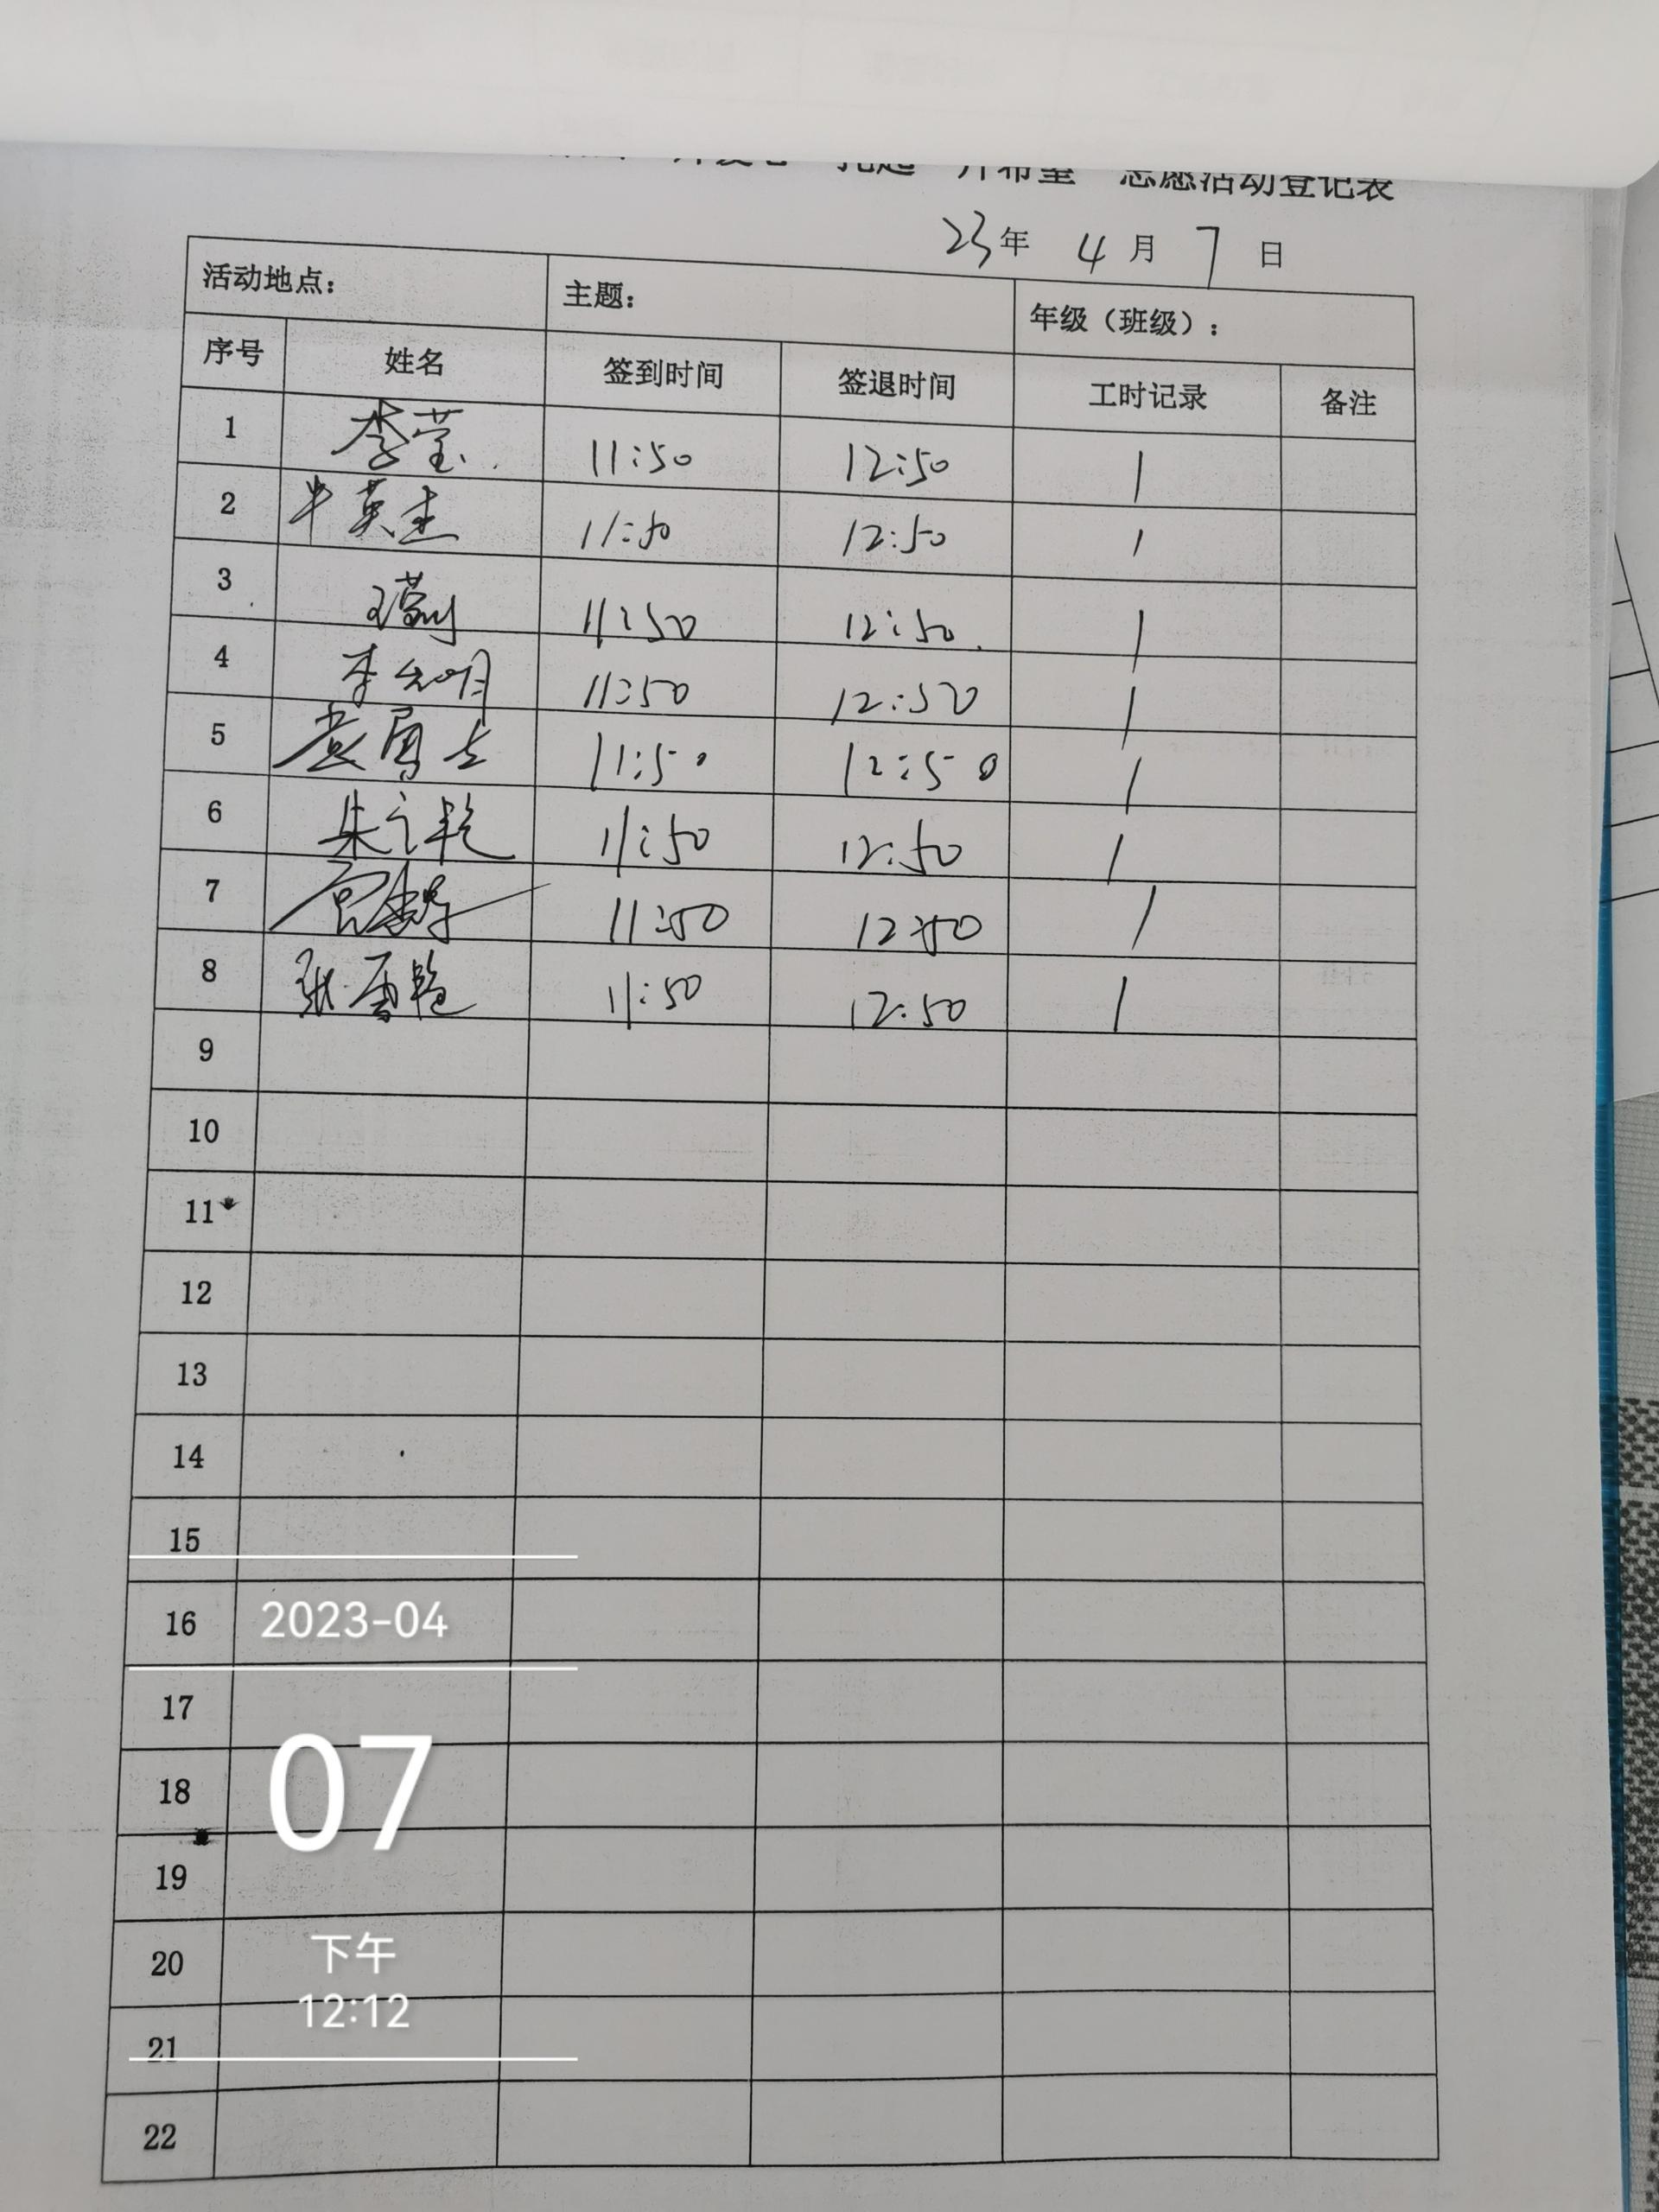 志愿活动登记表
23年 4月 7日
活动地点： 主题： 年级（班级）：
序号 姓名 签到时间 签退时间 工时记录 备注
1 李莹 11:50 12:50 1
2 牛英杰 11:50 12:50 1
3 11:50 12:50 1
4 李 明 11:50 12:50 1
5 11:50 12:50 1
6 朱 艳 11:50 12:50 1
7 11:50 12:50 1
8 张雪艳 11:50 12:50 1
9
10
11
12
13
14
15
16
17
18
19
20
21
22
2023-04
07
下午
12:12